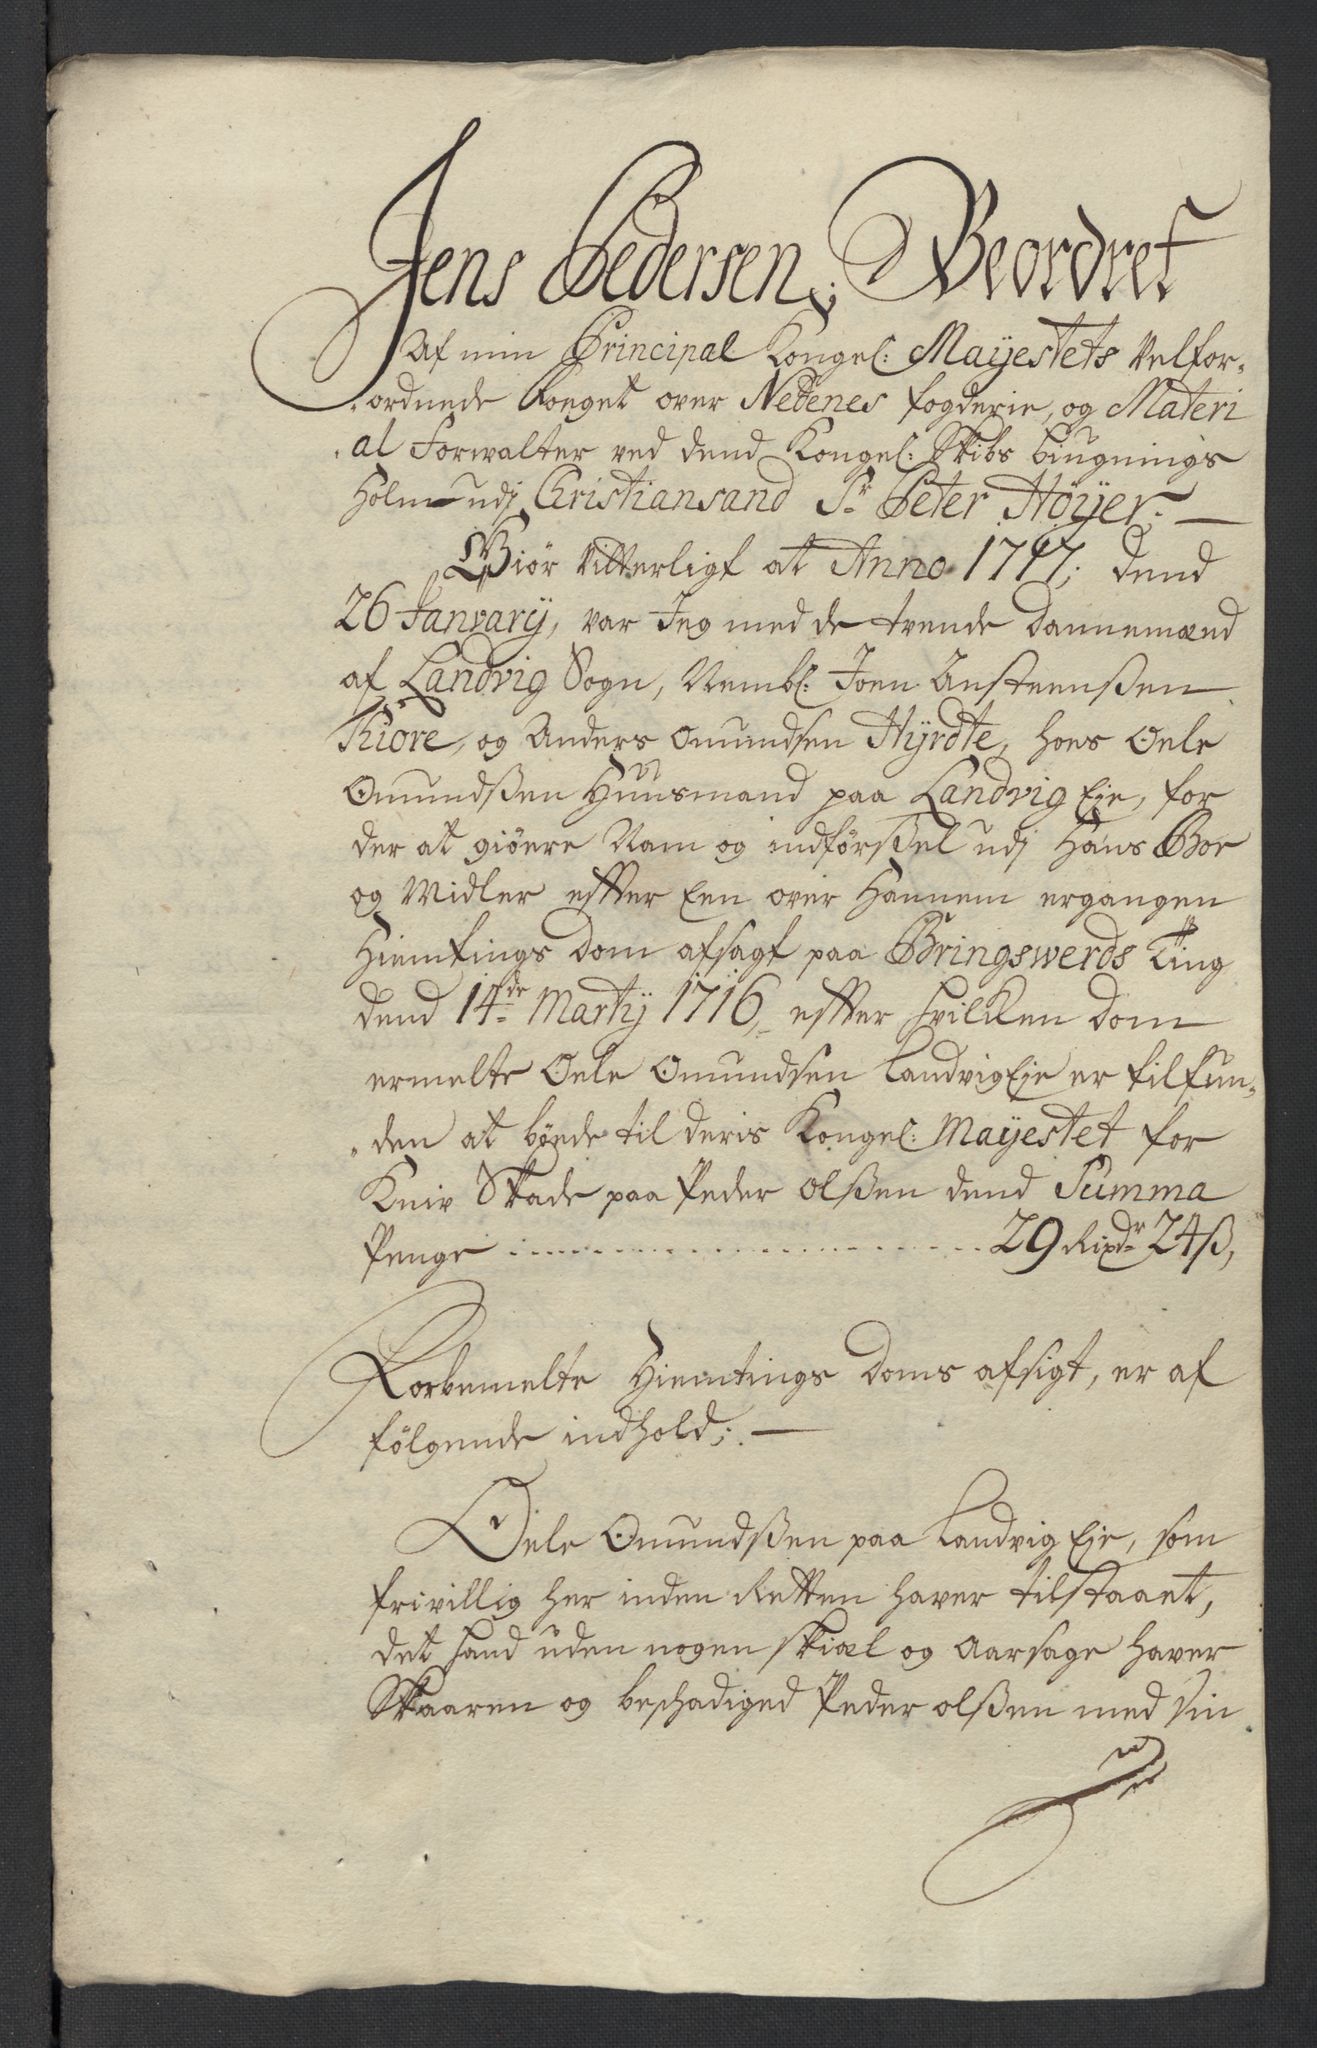 Jens Pedersen, Beordret
Af min Principal Kongel: Mayestets Velfor-
-ordnede Foeget over Nedenes fogderie, og Materi
-al Forwalter ved dend Kongel: Skibs biugnings
Holm udj Christiansand Sr. Peter Höÿer. —
Giör vitterligt at Anno 1717; dend
26 Janvarÿ, var Jeg med de tvende Dannemænd
af Landvig Sogn, Nembl: Joen Ansteenßen
Kiore, og Anders Omundsen Hÿrdte, hoes Oele
Omundßen Huusmand paa Landvig Eje, for
der at giöere Nam og indførßel udj Hans Boe
og Midler effter Een over Hannem ergangen
Hiemtings Dom afsagt paa Bringswerds Ting
dend 14de Martij 1716, effter hvilken Dom
ermelte Oele Omundsen Landvig Eje er tilfun-
-den at böede til deris Kongel: Mayestet for
Kniv Skade paa Peder Olßen dend Summa
Penge ............ 29 Rixdr 24 ß,
Forbemelte Hiemtings Doms afsigt, er af
følgende indhold; —
Oele Omundßen paa Landvig Eje, som
frivillig her inden Retten haver tilstaaet,
det hand uden nogen skiæl og Aarsage haver
Skaaren og beschadiged Peder Olßen med sin